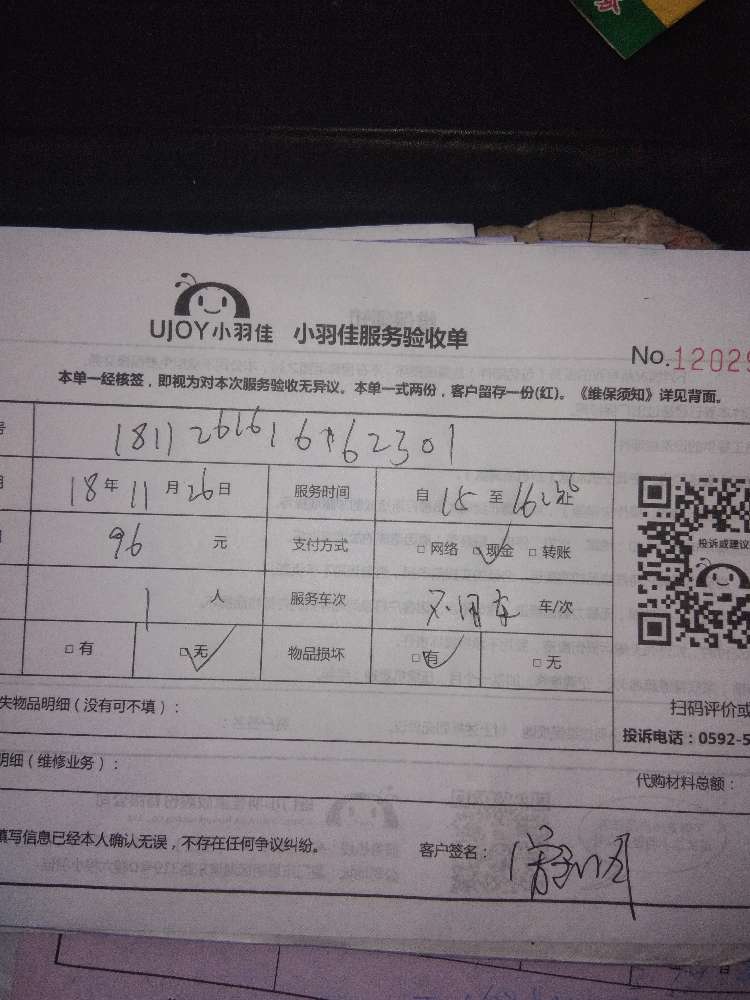 UJOY小羽佳 小羽佳服务验收单
No.12029
本单一经核签，即视为对本次服务验收无异议。本单一式两份，客户留存一份(红)。《维保须知》详见背面。
号
18年11月26日 服务时间 自15至16
96元 支付方式 □网络 □现金 □转账
投诉或建议
1人 服务车次 不用车 车/次
□有 □无 物品损坏 □有 □无
失物品明细（没有可不填）：
扫码评价或
投诉电话：0592-5
明细（维修业务）：
代购材料总额：
填写信息已经本人确认无误，不存在任何争议纠纷。 客户签名：